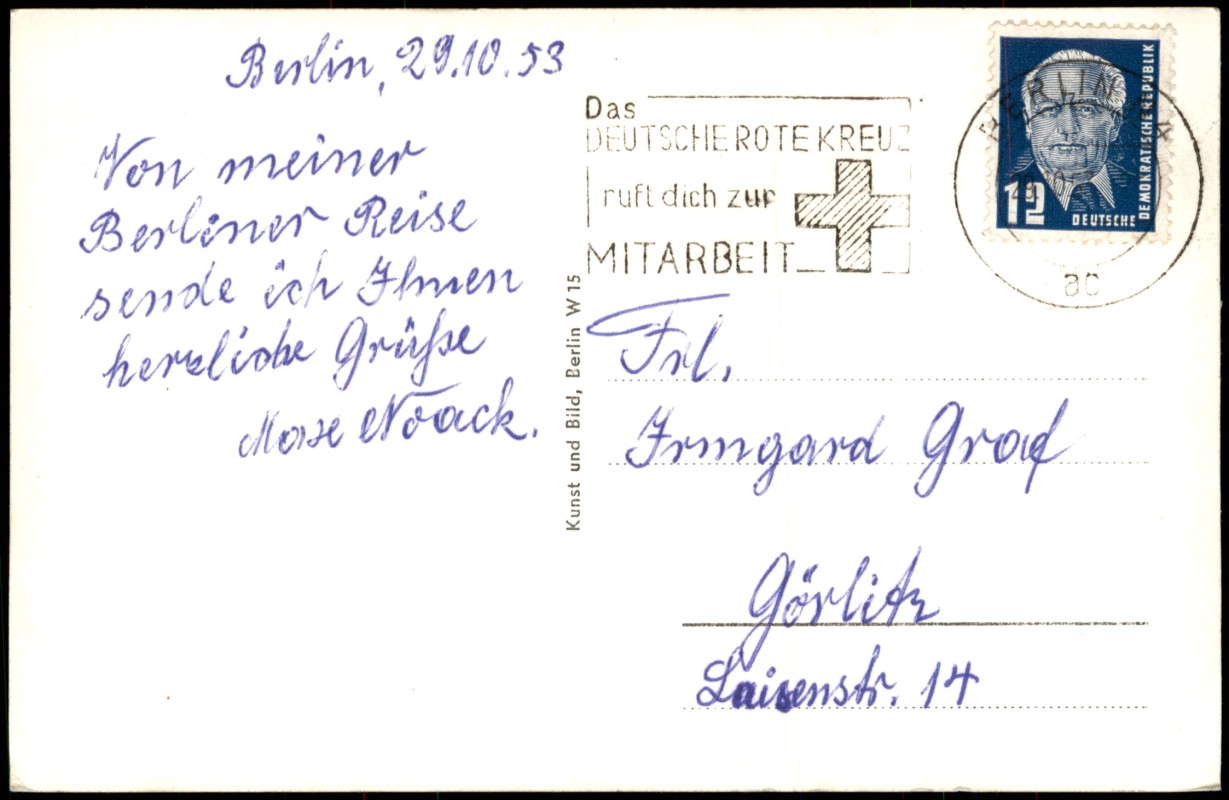 Berlin, 29.10.53
Von meiner
Berliner Reise
sende ich Ihnen
herzliche Grüße
Noack.
Kunst und Bild, Berlin W 15
Das
DEUTSCHE ROTE KREUZ
ruft dich zur
MITARBEIT
BERLIN
ac
12
DEUTSCHE
DEMOKRATISCHE REPUBLIK
Frl.
Irmgard Graf
Görlitz
Luisenstr. 14